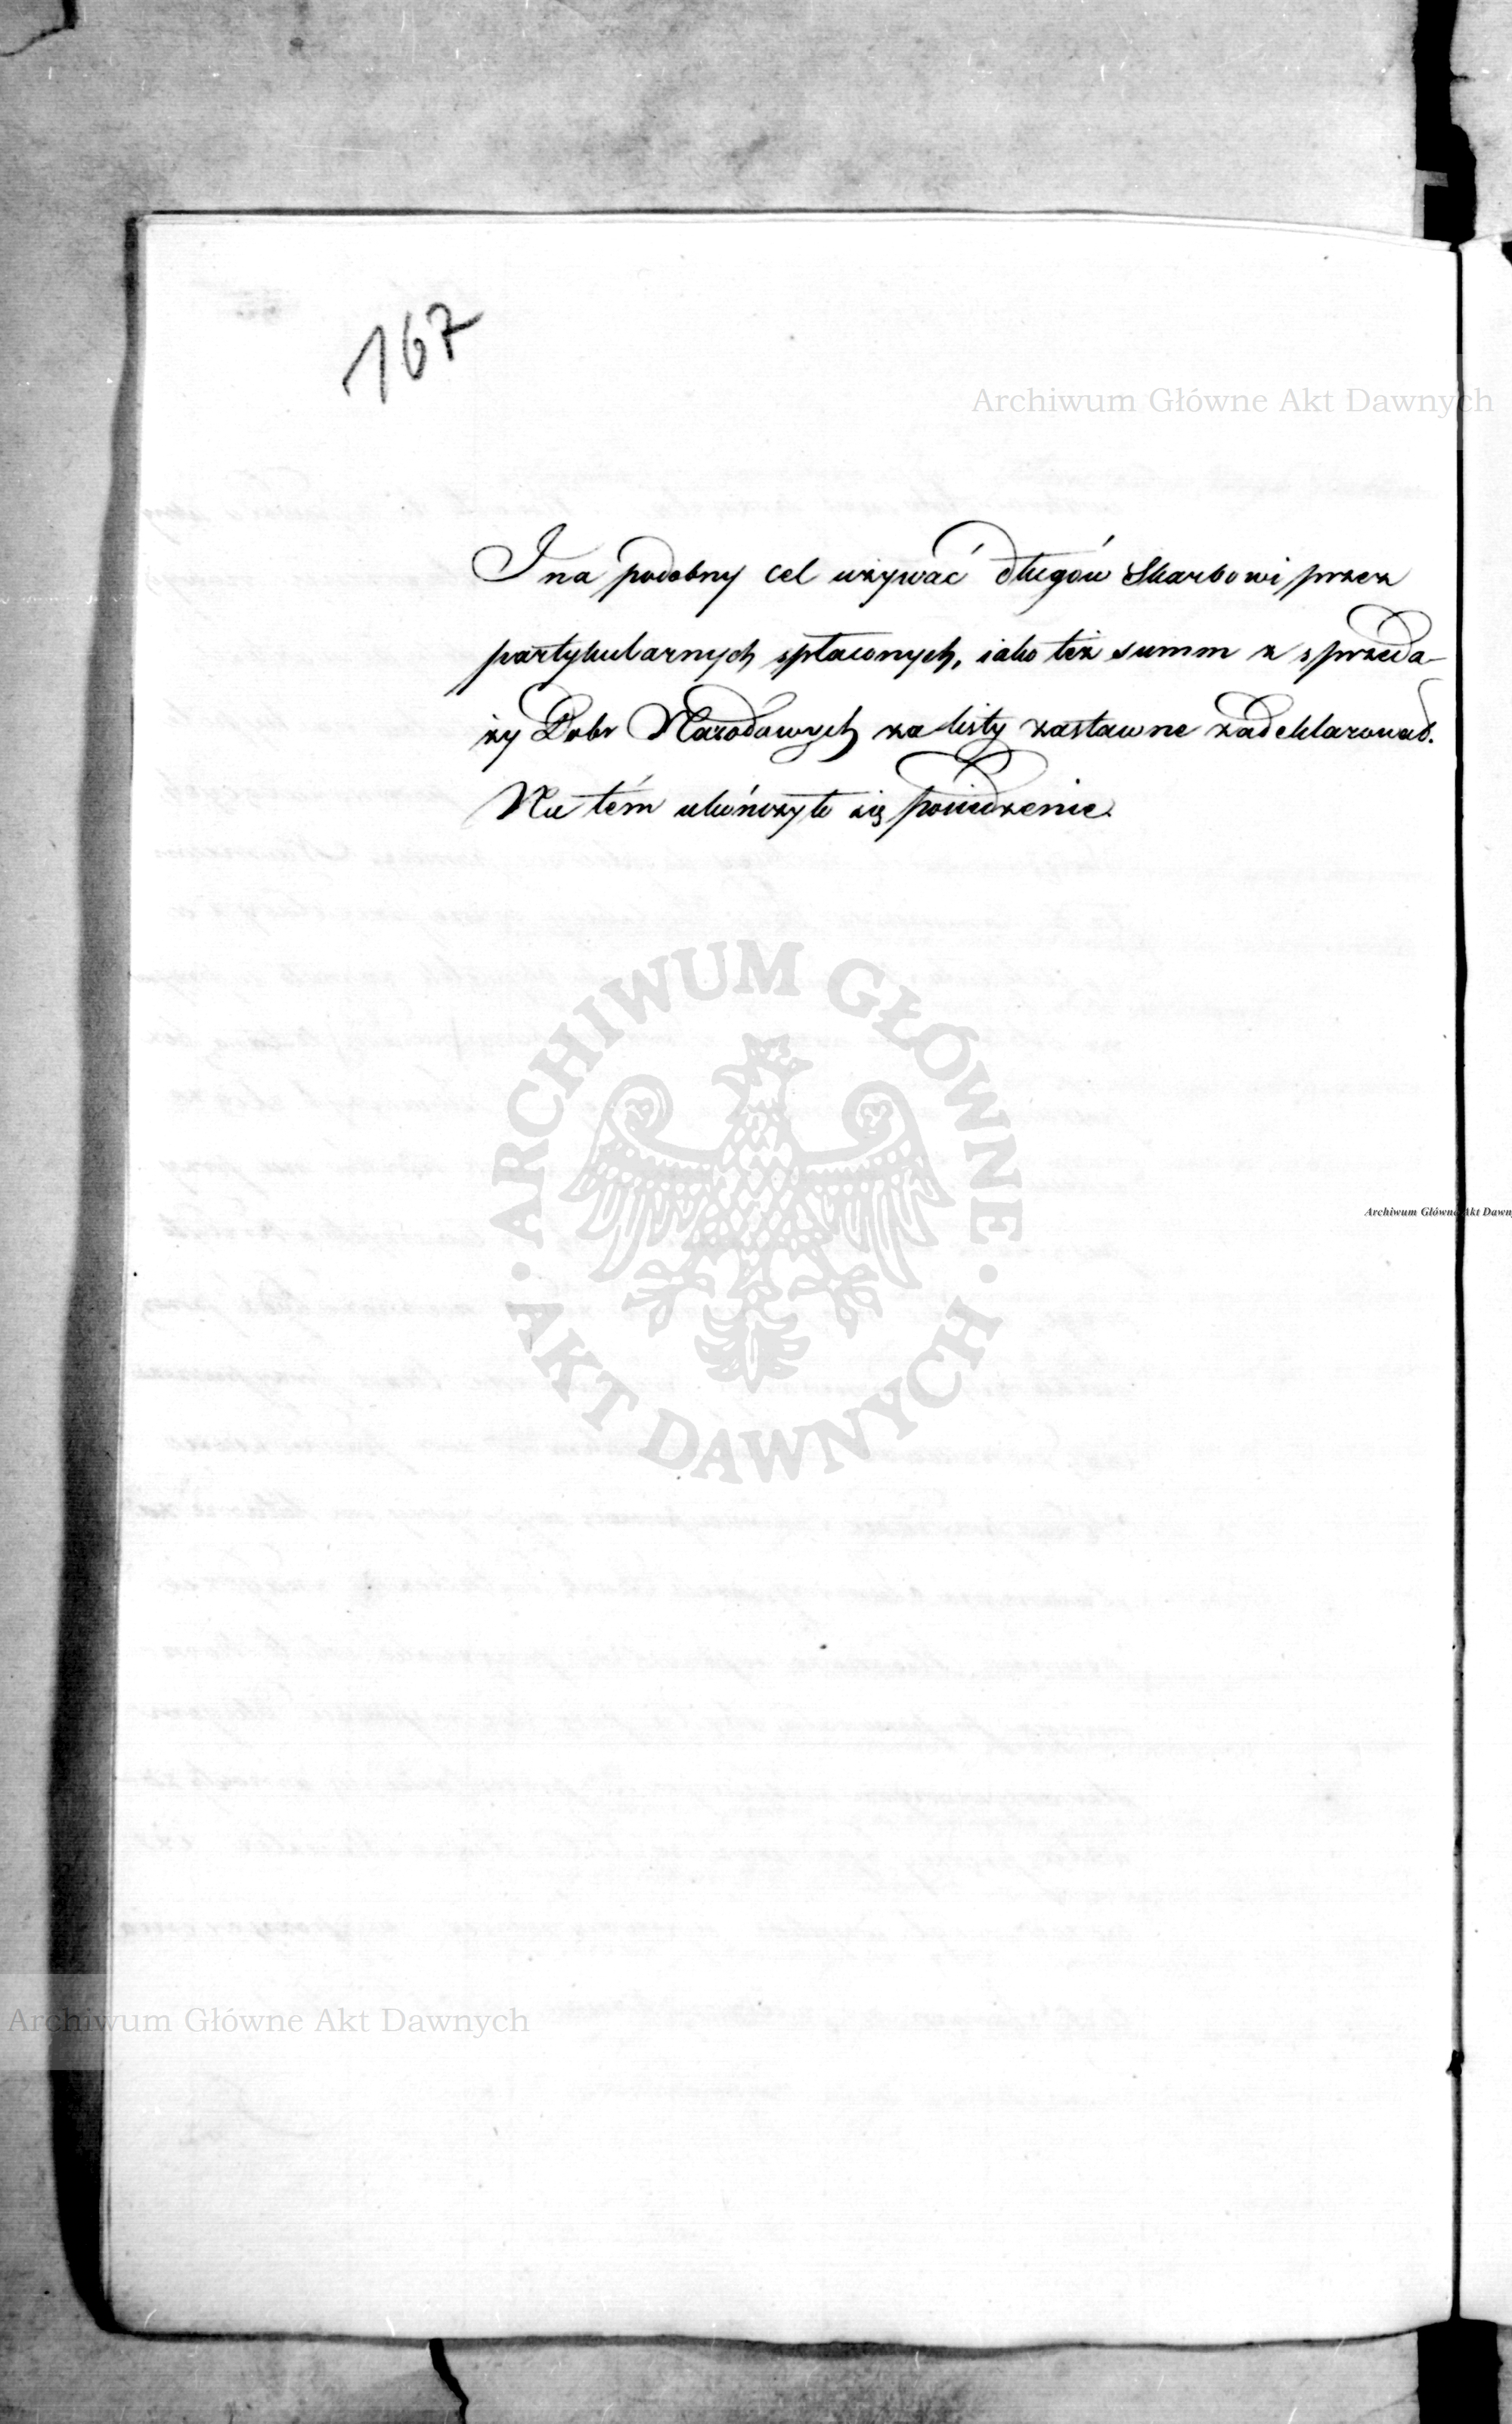 167
Archiwum Główne Akt Dawnych
I na podobny cel używać długów Skarbowi przez
partykularnych spłaconych, iako też summ z sprzeda-
ży Dobr Narodowych za listy zastawne zadeklarował.
Na tém ukończyło się posiedzenie.
ARCHIWUM GŁÓWNE
AKT DAWNYCH
Archiwum Główne Akt Dawn
Archiwum Główne Akt Dawnych